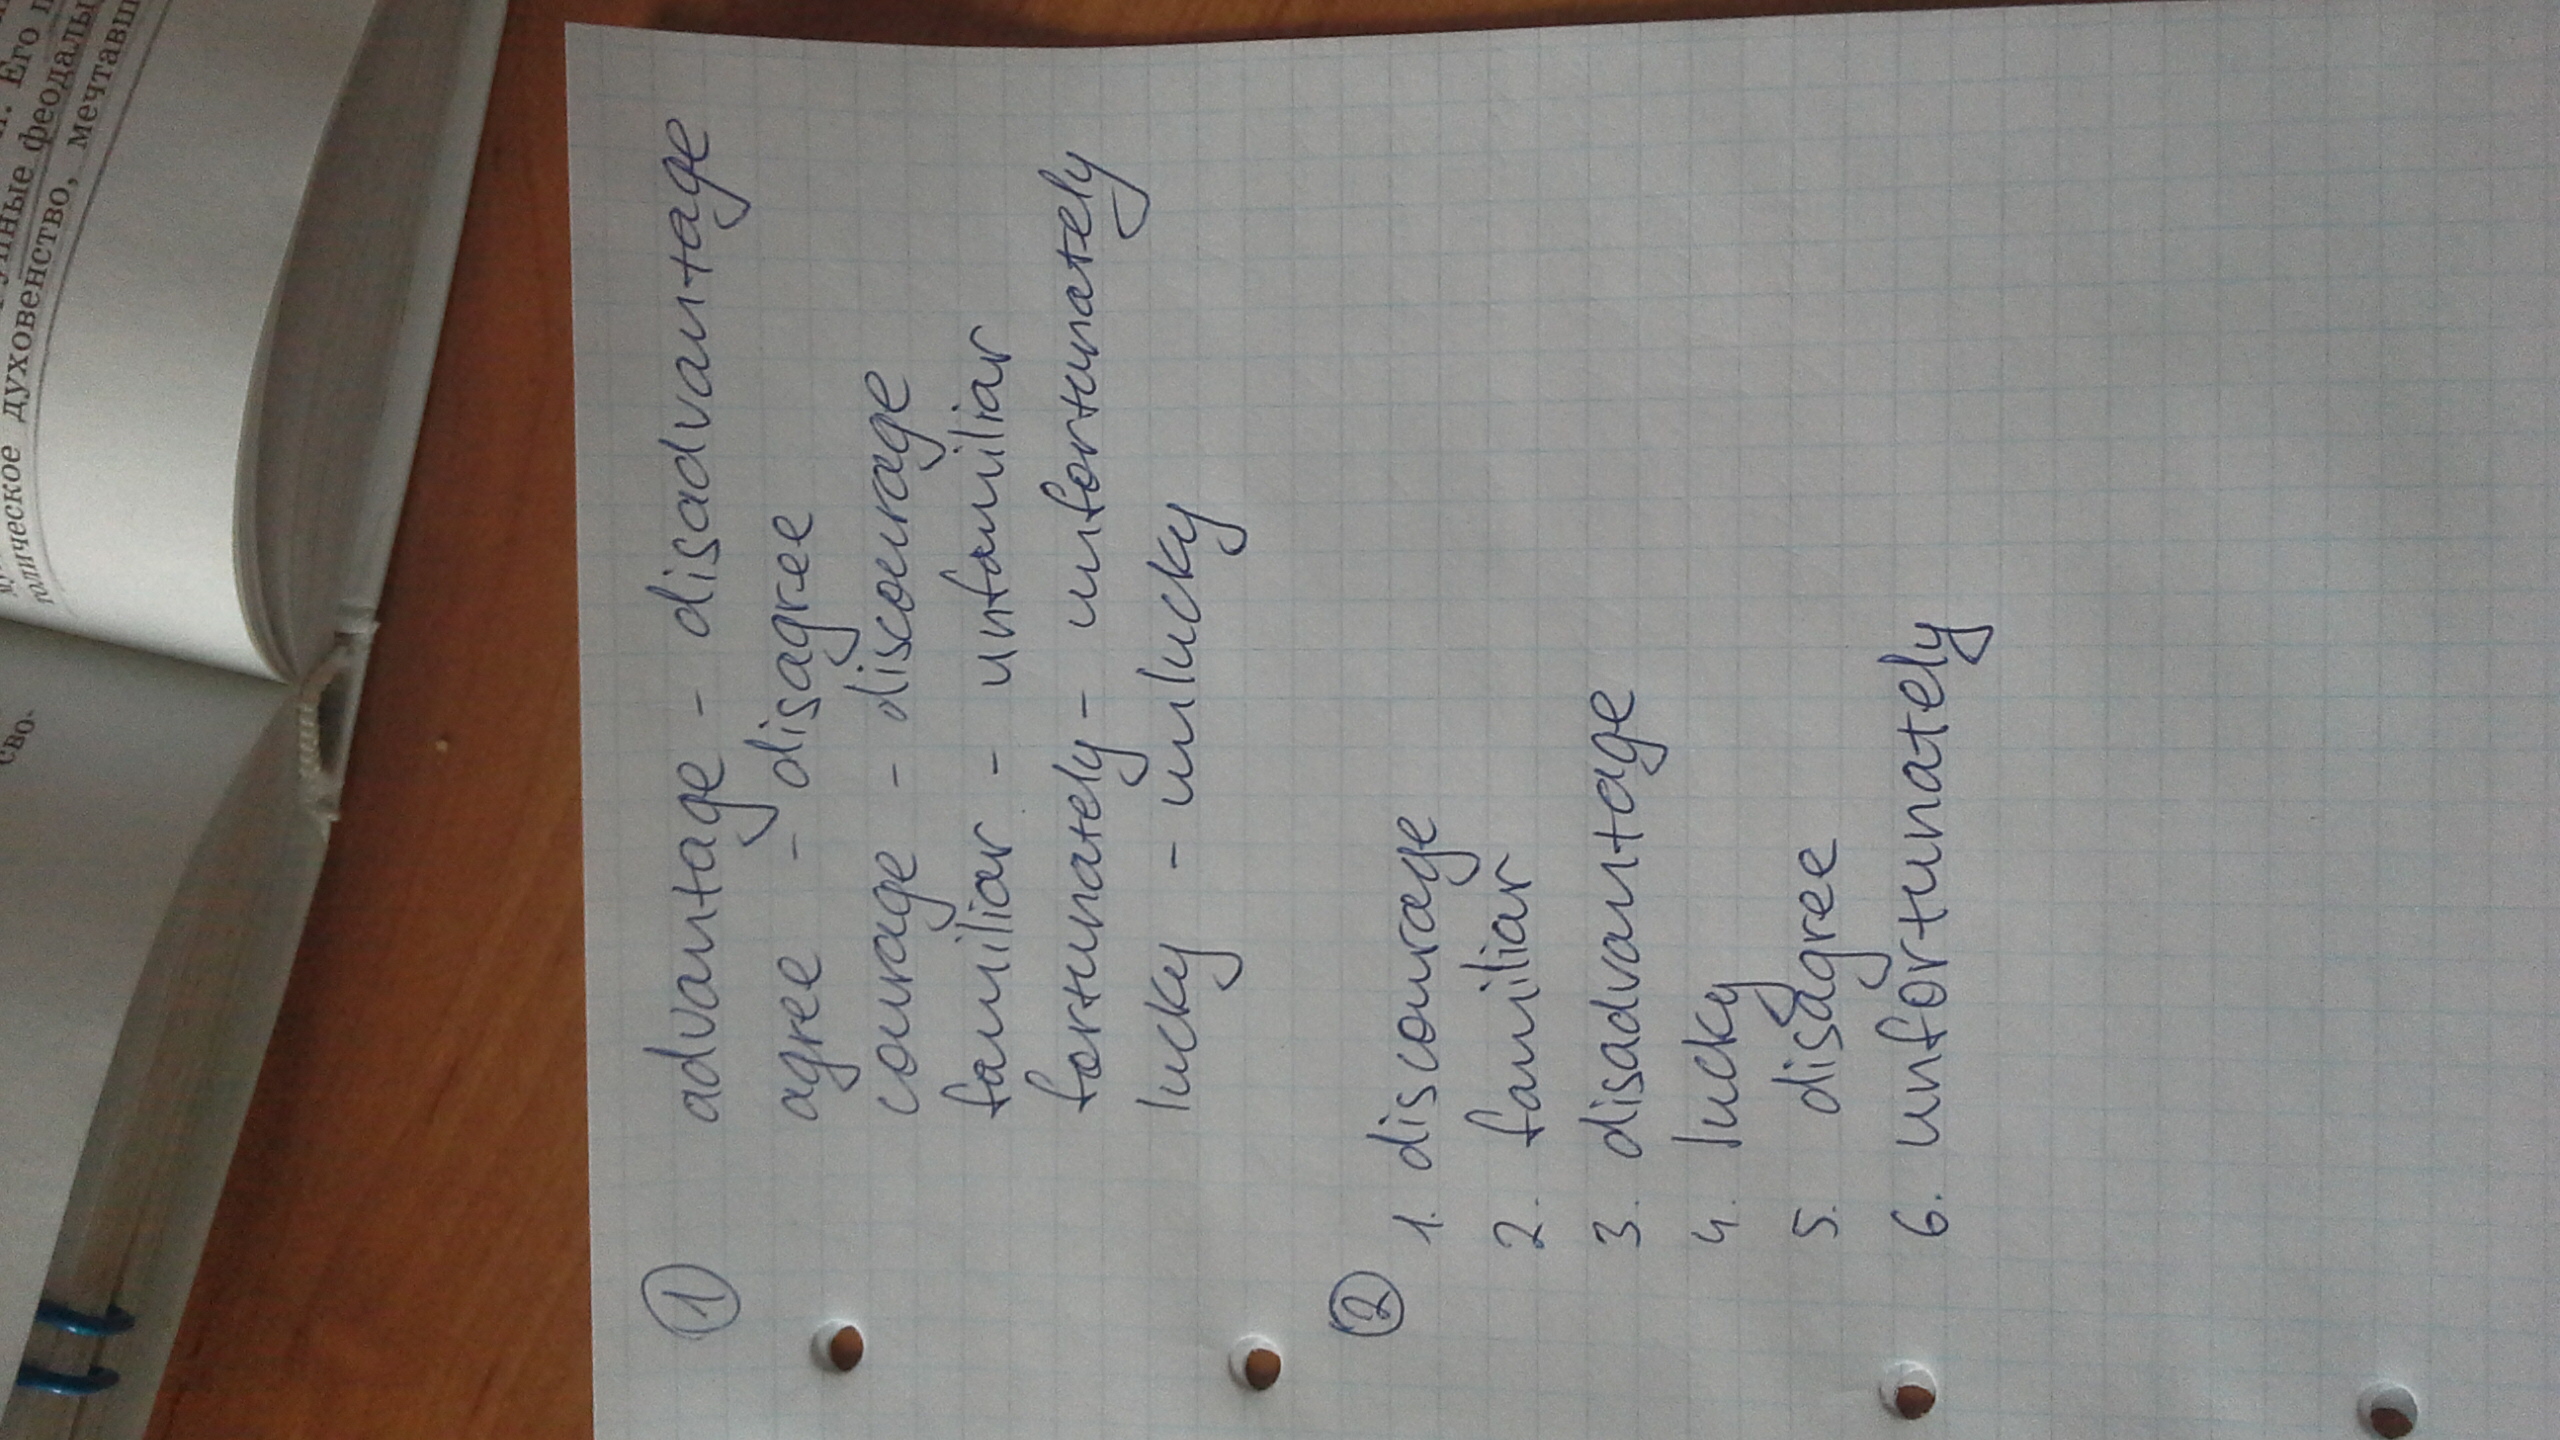 ①
advantage - disadvantage
agree - disagree
courage - discourage
familiar - unfamiliar
fortunately - unfortunately
lucky - unlucky
②
1. discourage
2. familiar
3. disadvantage
4. lucky
5. disagree
6. unfortunately
Его
феодалы
духовенство, мечтавш
толическое
сво-